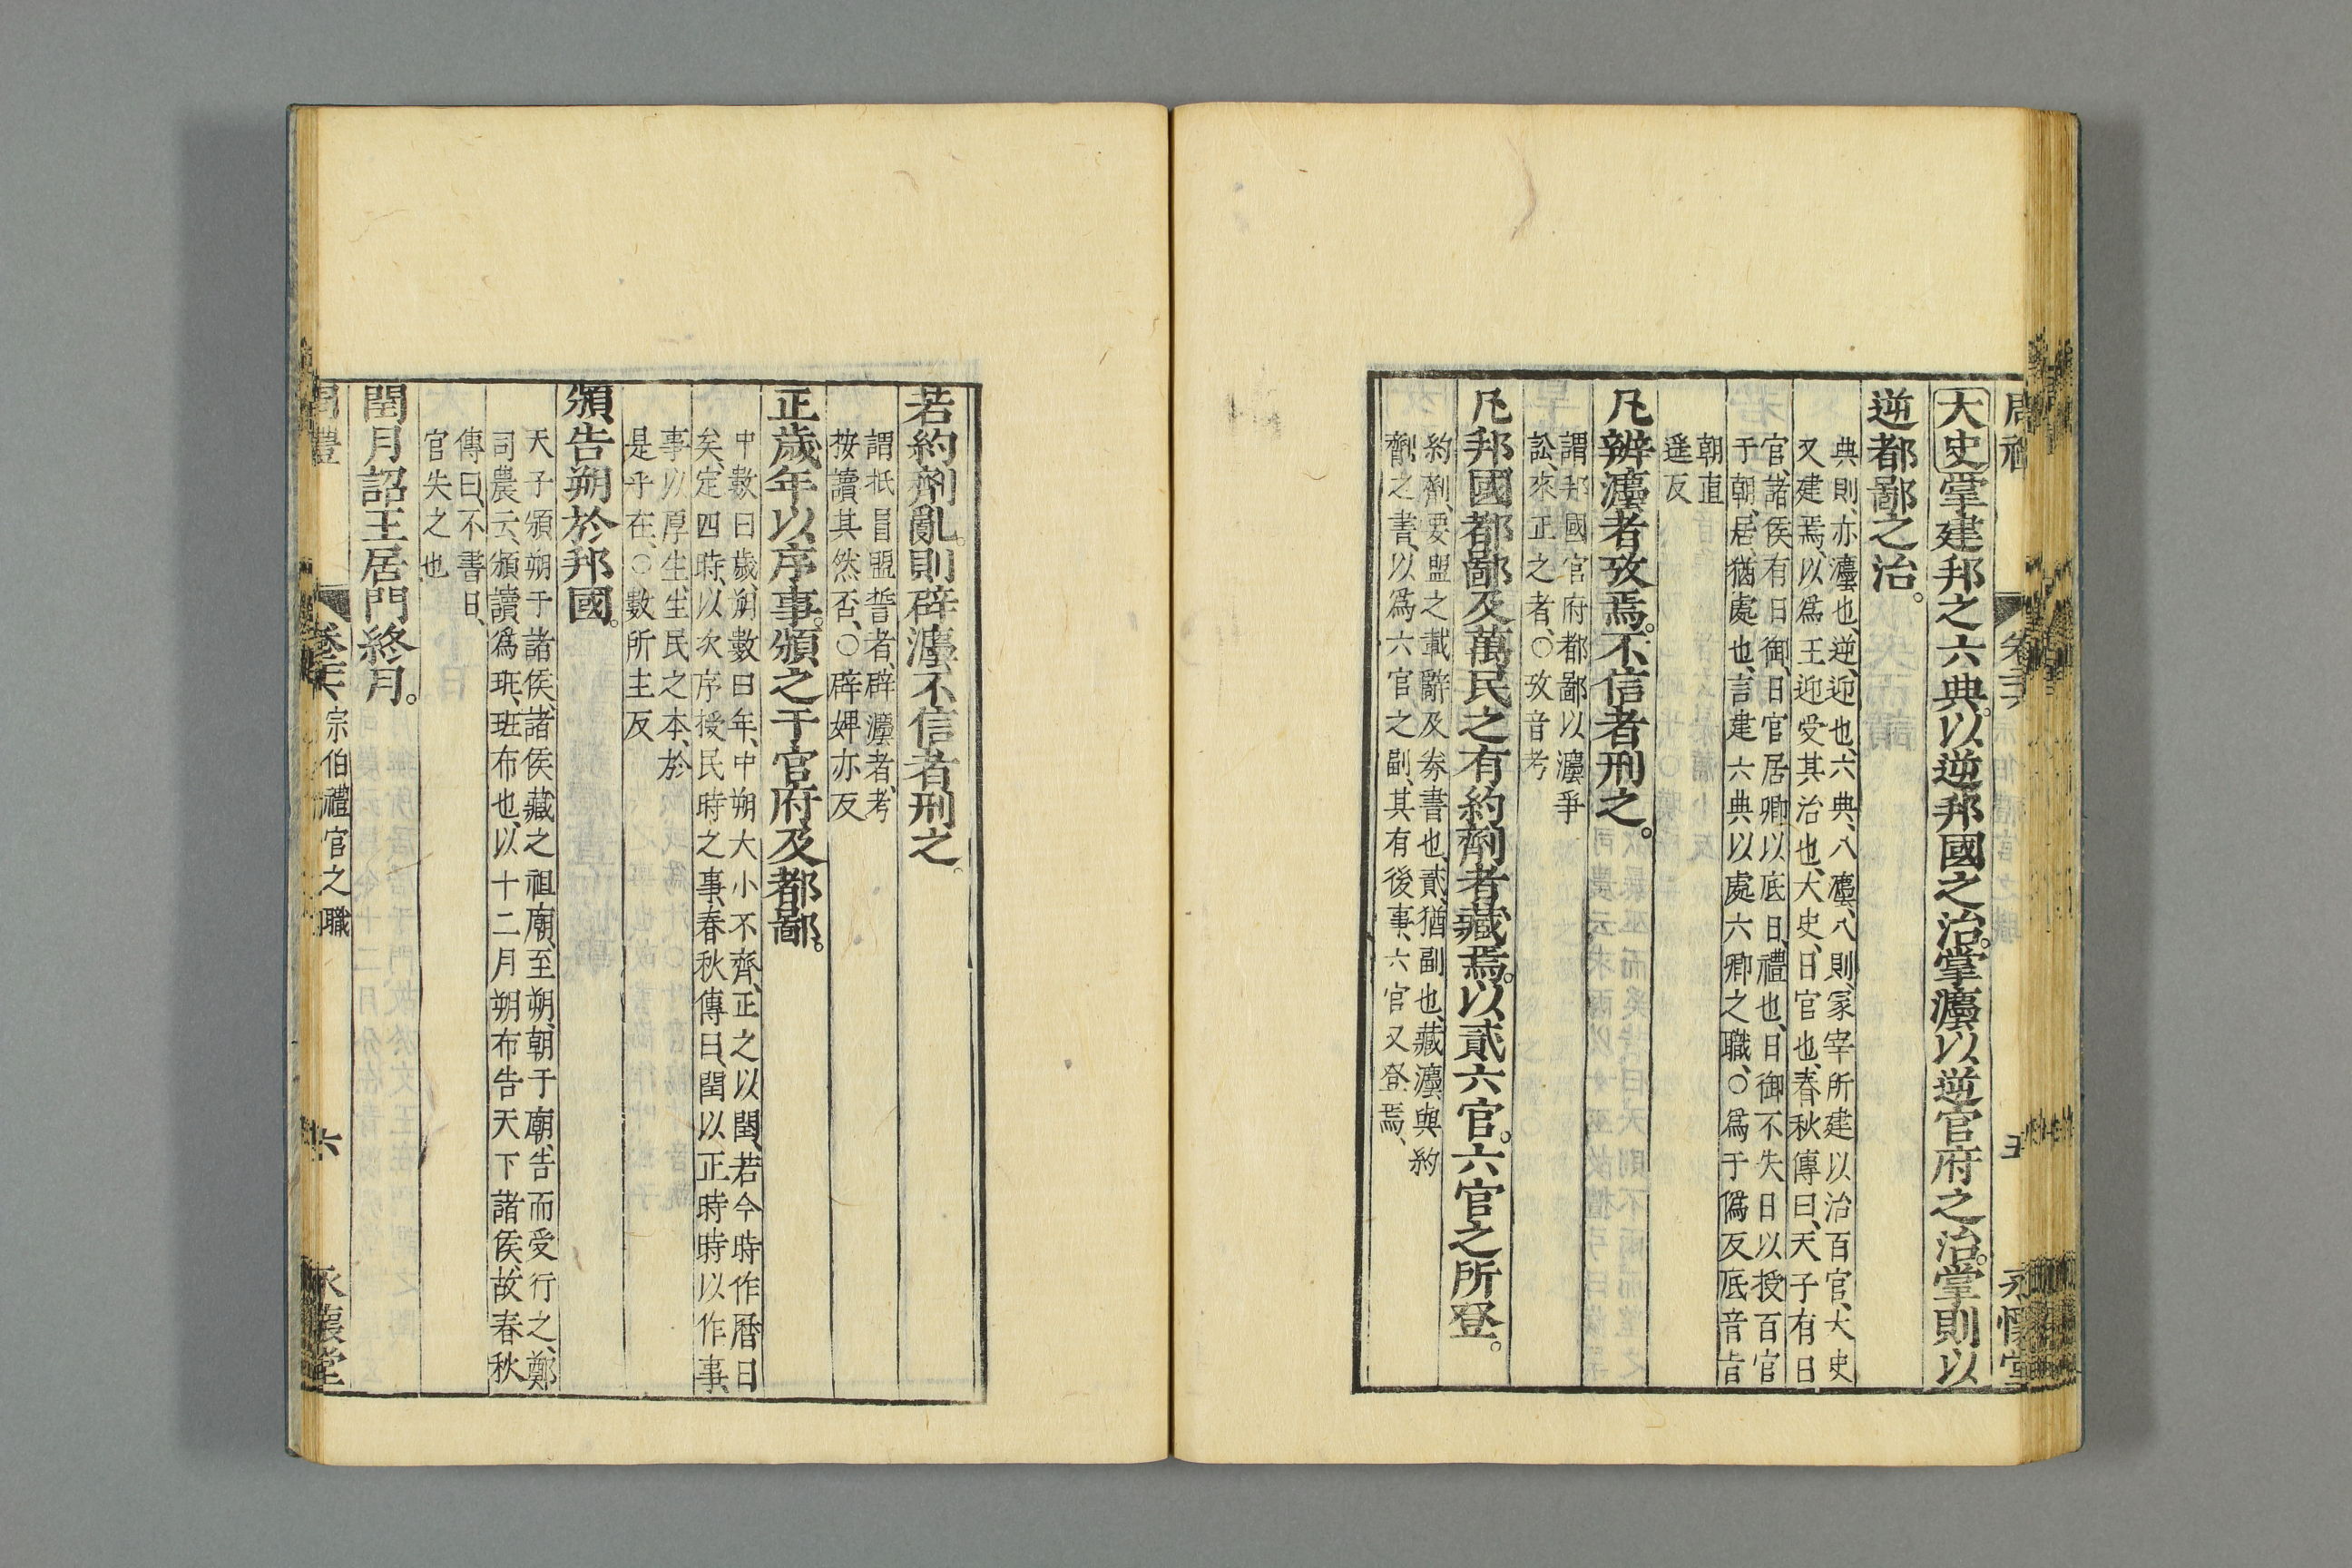 大史掌建邦之六典。以逆邦國之治。掌灋以逆官府之治。掌則以
逆都鄙之治。
典則、亦灋也、逆、迎也、六典、八灋、八則、冢宰所建以治百官、大史
又建焉、以爲王迎受其治也、大史、日官也、春秋傳曰、天子有日
官、諸侯有日御、日官居卿以底日、禮也、日御不失日以授百官
于朝、居、猶處也、言建六典以處六卿之職、○爲于僞反底音旨
朝直
遥反
凡辨灋者攷焉。不信者刑之。
謂邦國官府都鄙以灋爭
訟、來正之者、○攷音考
凡邦國都鄙及萬民之有約劑者藏焉。以貳六官。六官之所登。
約劑、要盟之載辭及券書也、貳、猶副也、藏灋與約
劑之書、以爲六官之副、其有後事、六官又登焉、
若約劑亂。則辟灋不信者刑之。
謂抵冒盟誓者、辟灋者、考
按讀其然否、○辟婢亦反
正歲年以序事。頒之于官府及都鄙。
中數曰歲、朔數曰年、中朔大小不齊、正之以閏、若今時作曆日
矣、定四時、以次序授民時之事、春秋傳曰、閏以正時時以作事、
事以厚生、生民之本、於
是乎在、○數所主反
頒告朔於邦國。
天子頒朔于諸侯、諸侯藏之祖廟、至朔、朝于廟、告而受行之、鄭
司農云、頒讀爲班、班布也、以十二月朔布告天下諸侯、故春秋
傳曰、不書日、
官失之也
閏月詔王居門終月。
宗伯禮官之職
六
永懷堂